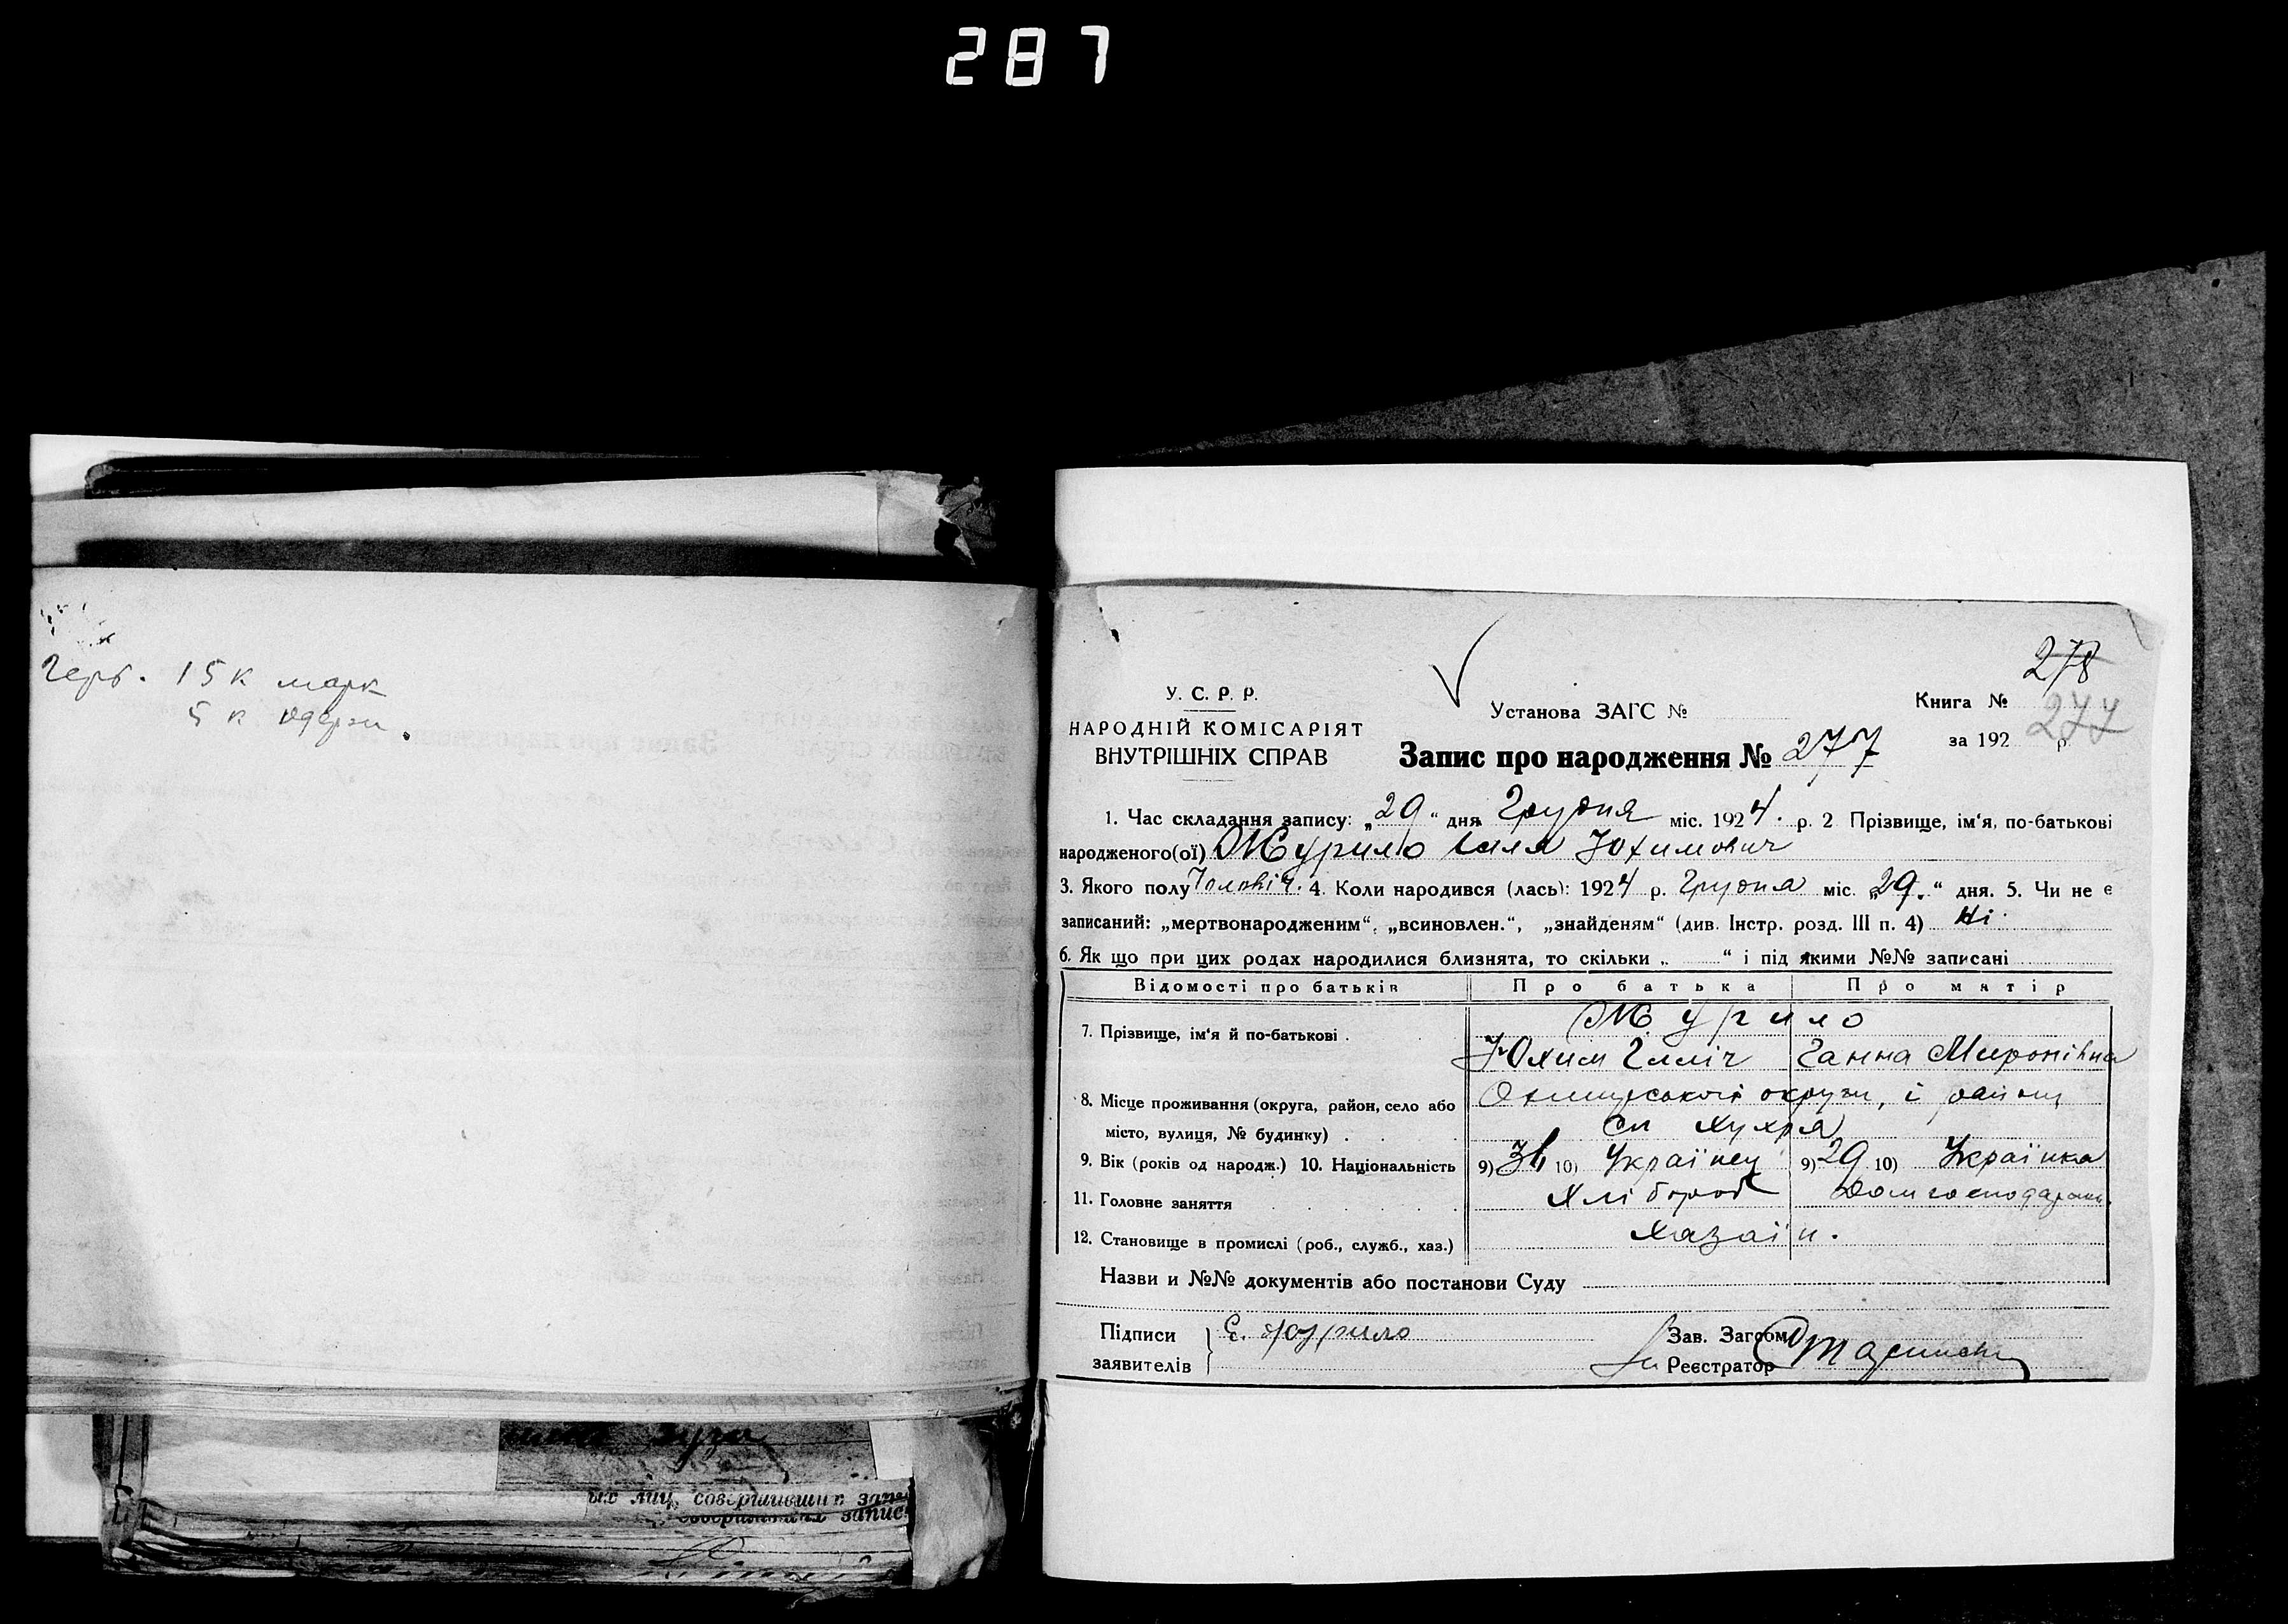 287
Герб. 15 к марк
5 к
278
277
У. С. Р. Р.
НАРОДНІЙ КОМІСАРІЯТ
ВНУТРІШНІХ СПРАВ
Установа ЗАГС №
Книга №
за 192 р.
Запис про народження № 277
1. Час складання запису: „29“ дня Грудня міс. 1924. р. 2 Прізвище, ім‘я, по-батькові
народженого(ої) Журило Ілля Юхимович
3. Якого полу Чоловіч. 4. Коли народився (лась): 1924 р. Грудня міс. „29.“ дня. 5. Чи не є
записаний: „мертвонародженим“, „всиновлен.“, „знайденям“ (див. Інстр. розд. III п. 4) Ні.
6. Як що при цих родах народилися близнята, то скільки „ “ і під якими №№ записані
Відомості про батьків Про батька Про матір
7. Прізвище, ім‘я й по-батькові . Журило
Юхим Ілліч Ганна Миронівна
8. Місце проживання (округа, район, село або
місто, вулиця, № будинку) . округи, і району
Хухра
9. Вік (років од народж.) 10. Національність 9) 31 10) Українец 9) 29 10) Українка
11. Головне заняття Хлібороб
12. Становище в промислі (роб., служб., хаз.) Хазаїн.
Назви и №№ документів або постанови Суду
Підписи
заявителів Є. Журило
Зав. Загсом
Реєстратор
ых лиц, совершивших запис
совершивших запис